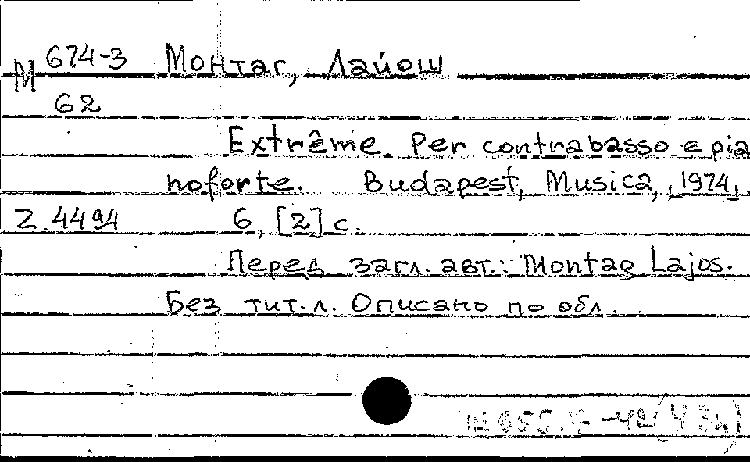 М 674-3 Монтаг, Лайош
62
Extrême. Per contrabasso e pia
noforte. Budapest, Musica, 1974,
Z.4494 6, [2] с.
Перед загл. авт.: Montag Lajos.
Без тит. л. Описано по обл.